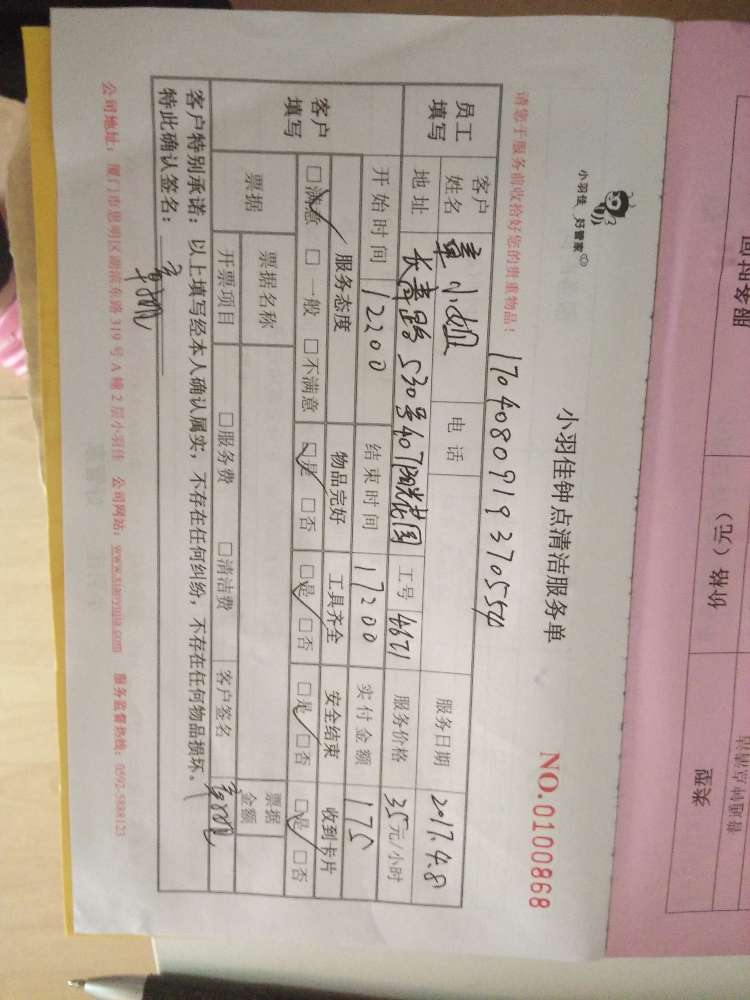 小羽佳 好管家
小羽佳钟点清洁服务单
NO.0100868
请您于服务前收拾好您的贵重物品！
170408091937055
员工填写
客户姓名 小姐 电话 服务日期 2017.4.8
地址 长青路530号407 花园 工号 4671 服务价格 35元/小时
开始时间 12:00 结束时间 17:00 实付金额 175
客户填写
服务态度 物品完好 工具齐全 安全结束 收到卡片
□满意 □一般 □不满意 □是 □否 □是 □否 □是 □否 □是 □否
票据 票据名称 票据金额
开票项目 □服务费 □清洁费 客户签名
客户特别承诺：以上填写经本人确认属实，不存在任何纠纷，不存在任何物品损坏。
特此确认签名：
公司地址：厦门市思明区湖滨东路319号A幢2层小羽佳 公司网站：www.xiaoyujia.com 服务监督热线：0592-5888123
服务时间
价格（元）
类型